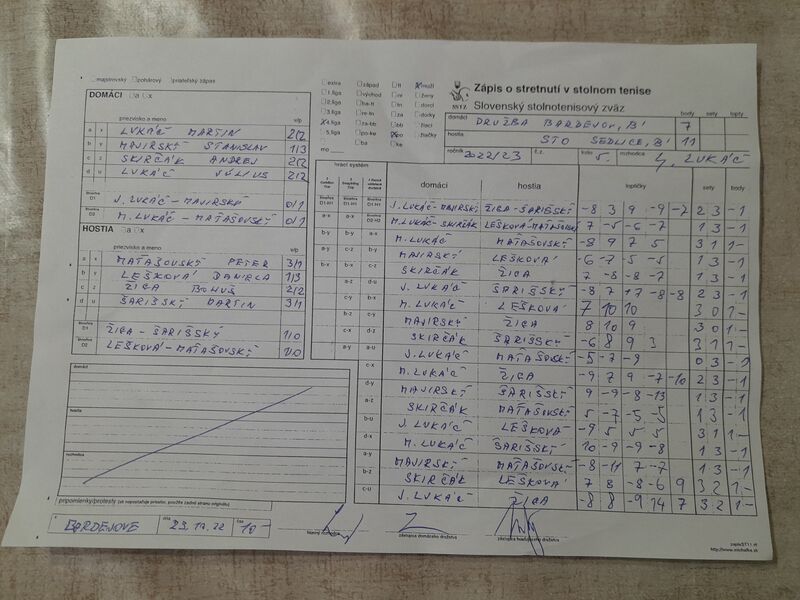 majstrovský pohárový priateľský zápas
DOMÁCI a x
priezvisko a meno v/p
a x LUKÁČ MARTIN 2/2
b y MAJIRSKÝ STANISLAV 1/3
c z SKIRČÁK ANDREJ 2/2
d u LUKÁČ JÚLIUS 2/2
D1 J. LUKÁČ - MAJIRSKÝ 0/1
D2 M. LUKÁČ - MAŤAŠOVSKÝ 0/1
HOSTIA a x
priezvisko a meno v/p
a x MAŤAŠOVSKÝ PETER 3/1
b y LEŠKOVÁ DANIELA 1/3
c z ŽIGA BOHUŠ 2/2
d u ŠARIŠSKÝ MARTIN 3/1
D1 ŽIGA - ŠARIŠSKÝ 1/0
D2 LEŠKOVÁ - MAŤAŠOVSKÝ 1/0
domáci
hostia
rozhodca
pripomienky/protesty (ak nepostačuje priestor, použite zadnú stranu originálu)
v BARDEJOVE dňa 23.10.22 čas 10-
hlavný rozhodca zástupca domáceho družstva zástupca hosťujúceho družstva
extra západ tt X muži
1.liga východ ni ženy
2.liga ba-tt tn dorci
3.liga re-tn za dorky
X 4.liga za-bb bb žiaci
5.liga ke-po X po žiačky
ba ke
SSTZ
Zápis o stretnutí v stolnom tenise
Slovenský stolnotenisový zväz
body sety lopty
domáci DRUŽBA BARDEJOV "B" 7
hostia STO SEDLICE "B" 11
ročník 2022/23 č.z. kolo 5. rozhodca J. LUKÁČ
hrací systém domáci hostia loptičky sety body
J. LUKÁČ-MAJIRSKÝ ŽIGA-ŠARIŠSKÝ -8 3 9 -9 -7 2 3 -1
M. LUKÁČ-SKIRČÁK LEŠKOVÁ-MAŤAŠOVSKÝ 7 -5 -6 -7 1 3 -1
M. LUKÁČ MAŤAŠOVSKÝ -8 9 7 5 3 1 1-
MAJIRSKÝ LEŠKOVÁ -6 -7 5 -5 1 3 -1
SKIRČÁK ŽIGA 7 -8 -8 -7 1 3 -1
J. LUKÁČ ŠARIŠSKÝ -8 7 17 -8 -8 2 3 -1
M. LUKÁČ LEŠKOVÁ 7 10 10 3 0 1-
MAJIRSKÝ ŽIGA 8 10 9 3 0 1-
SKIRČÁK ŠARIŠSKÝ -6 8 9 3 3 1 1-
J. LUKÁČ MAŤAŠOVSKÝ -5 -7 -9 0 3 -1
M. LUKÁČ ŽIGA -9 7 9 -7 -10 2 3 -1
MAJIRSKÝ ŠARIŠSKÝ 9 -9 -8 -13 1 3 -1
SKIRČÁK MAŤAŠOVSKÝ 5 -7 -5 -5 1 3 -1
J. LUKÁČ LEŠKOVÁ -9 5 5 5 3 1 1-
M. LUKÁČ ŠARIŠSKÝ 10 -9 -9 -8 1 3 -1
MAJIRSKÝ MAŤAŠOVSKÝ -8 -11 7 -7 1 3 -1
SKIRČÁK LEŠKOVÁ 7 8 -8 -6 9 3 2 1-
J. LUKÁČ ŽIGA -8 8 -9 14 7 3 2 1-
zapisST11.rtf
http://www.michalka.sk